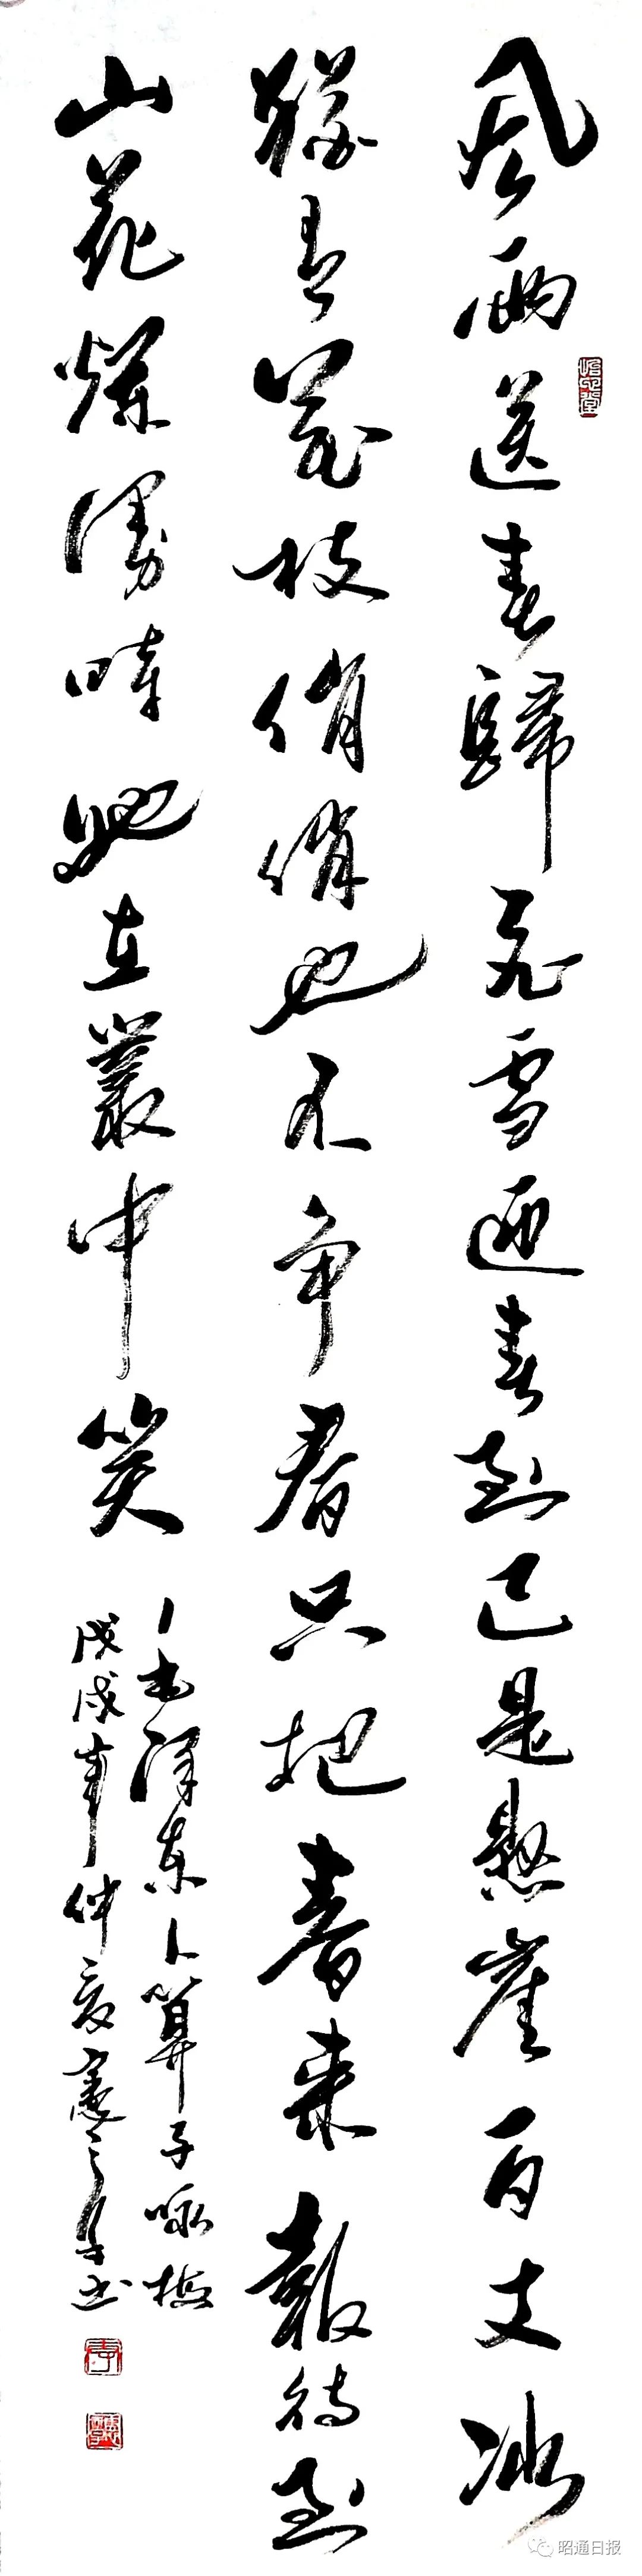 風雨送春歸飛雪迎春到已是懸崖百丈冰
猶有花枝俏俏也不争春只把春来報待到
山花爛漫時她在叢中笑
毛澤东卜算子咏梅
戊戌年仲夏憲书
昭通日报